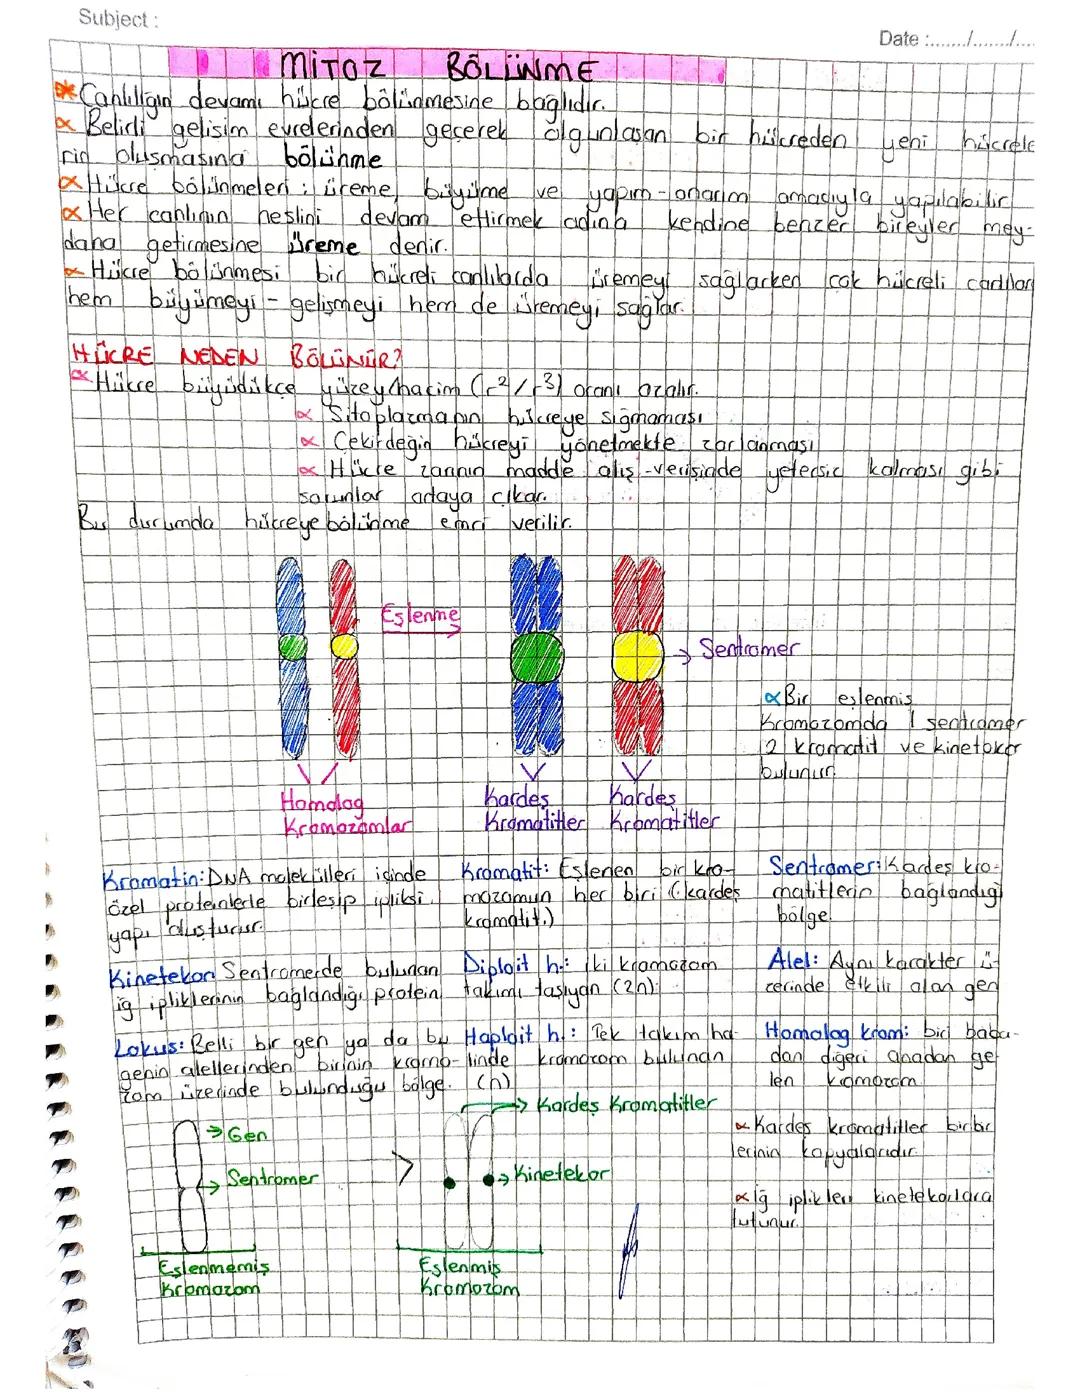 Subject :
Date :......../......../....
MİTOZ BÖLÜNME
Canlılığın devamı hücre bölünmesine bağlıdır.
∝ Belirli gelişim evrelerinden geçerek olgunlaşan bir hücreden yeni hücrele
rin oluşmasına bölünme
∝ Hücre bölünmeleri : üreme, büyüme ve yapım-onarım amacıyla yapılabilir
∝ Her canlının neslini devam ettirmek adına kendine benzer bireyler mey-
dana getirmesine üreme denir.
∝ Hücre bölünmesi bir hücreli canlılarda üremeyi sağlarken çok hücreli canlılar
hem büyümeyi - gelişmeyi hem de üremeyi sağlar.
HÜCRE NEDEN BÖLÜNÜR?
∝ Hücre büyüdükçe yüzey/hacim (r²/r³) oranı azalır.
∝ Sitoplazmanın hücreye sığmaması
∝ Çekirdeğin hücreyi yönetmekte zorlanması
∝ Hücre zarının madde alış-verişinde yetersiz kalması gibi
sorunlar ortaya çıkar.
Bu durumda hücreye bölünme emri verilir.
Eşlenme
→ Sentromer
∝ Bir eşlenmiş
Kromozomda 1 sentromer
2 kromatit ve kinetokor
bulunur.
Homolog
Kromozomlar
Kardeş
Kromatitler
Kardeş
Kromatitler
Kromatin: DNA molekülleri içinde
özel proteinlerle birleşip ipliksi
yapı oluşturur.
Kromatit: Eşlenen bir kro-
mozomun her biri (kardeş
kromatit.)
Sentromer: Kardeş kro-
matitlerin bağlandığı
bölge
Kinetekor: Sentromerde bulunan
iğ ipliklerinin bağlandığı protein
Diploit h.: İki kromozom
takımı taşıyan (2n)
Alel: Aynı karakter ü-
zerinde etkili olan gen
Lokus: Belli bir gen ya da bu
genin alellerinden birinin kromo-
zom üzerinde bulunduğu bölge.
Haploit h.: Tek takım ha-
linde kromozom bulunan
(n)
Homolog krom: biri baba-
dan diğeri anadan ge
len kromozom
→ Kardeş Kromatitler
→ Gen
→ Sentromer
→ Kinetekor
∝ Kardeş kromatitler birbir
lerinin kopyalarıdır
∝ İğ iplikleri kinetekorlara
tutunur.
Eşlenmemiş
Kromozom
Eşlenmiş
Kromozom